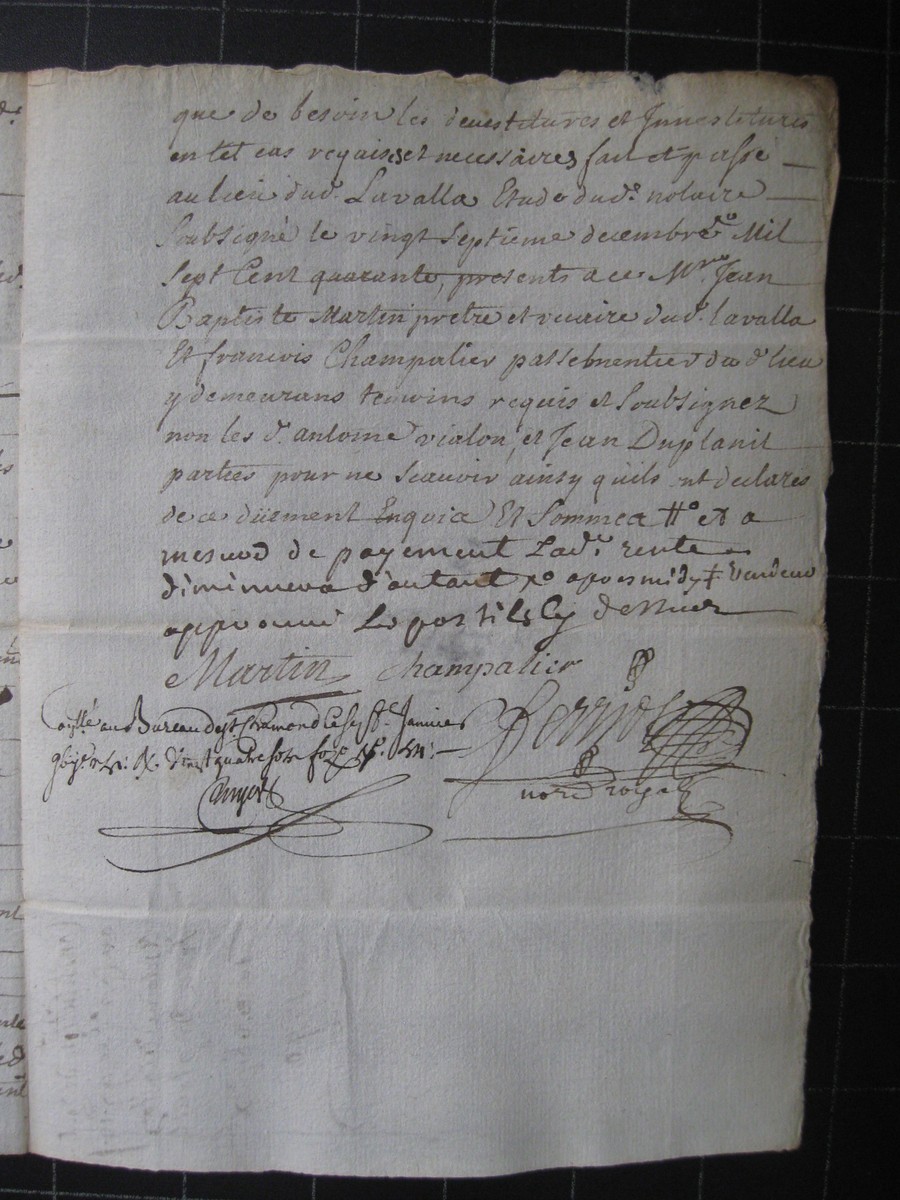 que de besoin les devestitures et Jnnestitures
en tel cas requises et necessaires fait et passé
au lieu dud. Lavalla Etude dud. notaire
soubsigné le vingt septieme decembre Mil
sept Cent quarante, presents a ce Mre Jean
Baptiste Martin pretre et vicaire dud. Lavalla
Et francois Champalier passementier du d. lieu
y demeurans temoins requis et soubsignez
non les d. antoine vialon, et Jean Duplanil
parties pour ne scauoir ainsy quils ont declarés
de ce duement Enquis Et Sommes et a
mesure de payement Lad. rente
diminuera d'autant apres midy vendeur
approuué Le postils cy dessus
Martin Champalier
au Bureau de st Chamond Le Janvier
not. royal